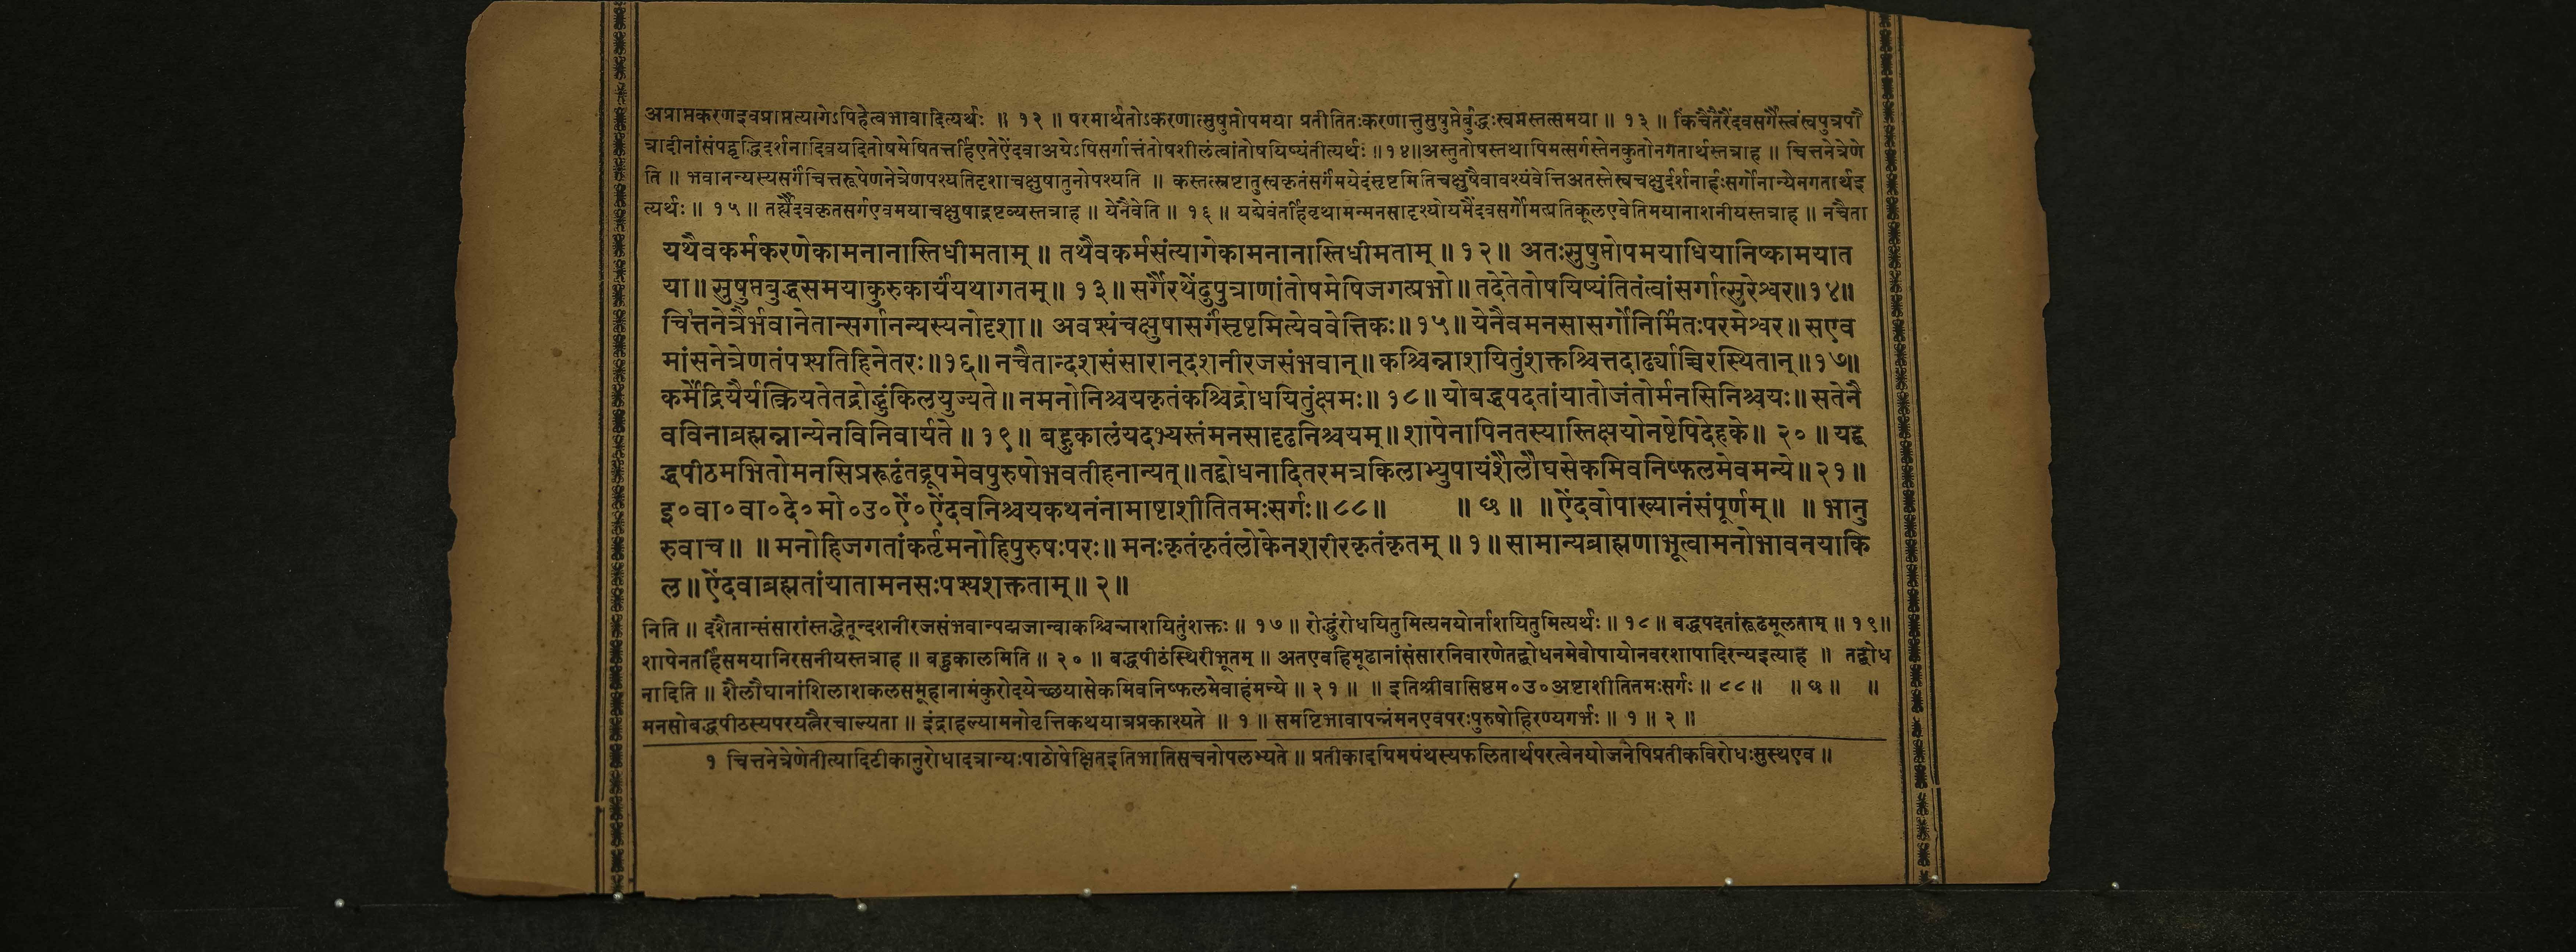 अप्राप्तकरणइवप्राप्तत्यागेऽपिहेत्वभावादित्यर्थः ॥ १२ ॥ परमार्थतोऽकरणात्सुषुप्तोपमया प्रतीतितःकरणात्तुसुषुप्तेर्बुद्धःस्वप्नस्तत्समया ॥ १३ ॥ किंचैतैरैंदवसर्गैस्त्वंस्वपुत्रपौ
त्रादीनांसंपद्वृद्धिदर्शनादिवयदितोषमेषितत्तर्हिएतेऐंदवाअयेऽपिसर्गात्तंतोषशीलंत्वांतोषयिष्यंतीत्यर्थः ॥१४॥अस्तुतोषस्तथापिमत्सर्गस्तेनकुतोनगतार्थस्तत्राह ॥ चित्तनेत्रेणे
ति ॥ भवानन्यस्यसर्गंचित्तरूपेणनेत्रेणपश्यतिदृशाचक्षुषातुनोपश्यति ॥ कस्तत्स्रष्टातुस्वकृतंसर्गंमयेदंसृष्टमितिचक्षुषैवावश्यंवेत्तिअतस्तेस्वचक्षुर्दर्शनार्हःसर्गोनान्येनगतार्थइ
त्यर्थः ॥ १५ ॥ तर्ह्यैंदवकृतसर्गएवमयाचक्षुषाद्रष्टव्यस्तत्राह ॥ येनैवेति ॥ १६ ॥ यद्येवंतर्हिवृथामन्मनसादृश्योयमैंदवसर्गोमत्प्रतिकूलएवेतिमयानाशनीयस्तत्राह ॥ नचैता
यथैवकर्मकरणेकामनानास्तिधीमताम् ॥ तथैवकर्मसंत्यागेकामनानास्तिधीमताम् ॥ १२ ॥ अतःसुषुप्तोपमयाधियानिष्कामयात
या ॥ सुषुप्तबुद्धसमयाकुरुकार्यंयथागतम् ॥ १३ ॥ सर्गैरथेंदुपुत्राणांतोषमेषिजगत्प्रभो ॥ तदेतेतोषयिष्यंतितंत्वांसर्गात्सुरेश्वर॥१४॥
चित्तनेत्रैर्भवानेतान्सर्गानन्यस्यनोदृशा ॥ अवश्यंचक्षुषासर्गंसृष्टमित्येववेत्तिकः॥१५॥ येनैवमनसासर्गोनिर्मितःपरमेश्वर॥ सएव
मांसनेत्रेणतंपश्यतिहिनेतरः॥१६॥ नचैतान्दशसंसारान्दशनीरजसंभवान्॥ कश्चिन्नाशयितुंशक्तश्चित्तदार्ढ्याच्चिरस्थितान्॥१७॥
कर्मेंद्रियैर्यत्क्रियतेतद्रोद्धुंकिलयुज्यते॥ नमनोनिश्चयकृतंकश्चिद्रोधयितुंक्षमः॥ १८॥ योबद्धपदतांयातोजंतोर्मनसिनिश्चयः॥ सतेनै
वविनाब्रह्मन्नान्येनविनिवार्यते ॥ १९॥ बहुकालंयदभ्यस्तंमनसादृढनिश्चयम्॥ शापेनापिनतस्यास्तिक्षयोनष्टेपिदेहके॥ २० ॥ यद्ब
द्धपीठमभितोमनसिप्ररूढंतद्रूपमेवपुरुषोभवतीहनान्यत्॥ तद्बोधनादितरमत्रकिलाभ्युपायंशैलौघसेकमिवनिष्फलमेवमन्ये॥ २१॥
इ०वा०वा०दे०मो०उ०ऐं०ऐंदवनिश्चयकथनंनामाष्टाशीतितमःसर्गः॥ ८८॥ ॥ छ ॥ ॥ ऐंदवोपाख्यानंसंपूर्णम्॥ ॥ भानु
रुवाच॥ ॥ मनोहिजगतांकर्तृमनोहिपुरुषःपरः॥ मनःकृतंकृतंलोकेनशरीरकृतंकृतम् ॥ १॥ सामान्यब्राह्मणाभूत्वामनोभावनयाकि
ल॥ ऐंदवाब्रह्मतांयातामनसःपश्यशक्तताम्॥ २॥
निति ॥ दशैतान्संसारांस्तद्धेतून्दशनीरजसंभवान्पद्मजान्वाकश्चिन्नाशयितुंशक्तः ॥ १७ ॥ रोद्धुंरोधयितुमित्यनयोर्नाशयितुमित्यर्थः ॥ १८ ॥ बद्धपदतांरूढमूलताम् ॥ १९॥
शापेनतर्हिसमयानिरसनीयस्तत्राह ॥ बहुकालमिति ॥ २० ॥ बद्धपीठंस्थिरीभूतम् ॥ अतएवहिमूढानांसंसारनिवारणेतद्बोधनमेवोपायोनवरशापादिरन्यइत्याह ॥ तद्बोध
नादिति ॥ शैलौघानांशिलाशकलसमूहानामंकुरोदयेच्छयासेकमिवनिष्फलमेवाहंमन्ये ॥ २१ ॥ ॥ इतिश्रीवासिष्ठम०उ०अष्टाशीतितमःसर्गः ॥ ८८ ॥ ॥ छ ॥ ॥
मनसोबद्धपीठस्यपरयत्नैरचाल्यता ॥ इंद्राहल्यामनोवृत्तिकथयात्रप्रकाश्यते ॥ १ ॥ समष्टिभावापन्नंमनएवपरःपुरुषोहिरण्यगर्भः ॥ १ ॥ २ ॥
१ चित्तनेत्रेणेतीत्यादिटीकानुरोधादत्रान्यःपाठोपेक्षितइतिभातिसचनोपलभ्यते ॥ प्रतीकादग्रिमग्रंथस्यफलितार्थपरत्वेनयोजनेपिप्रतीकविरोधःसुस्थएव ॥